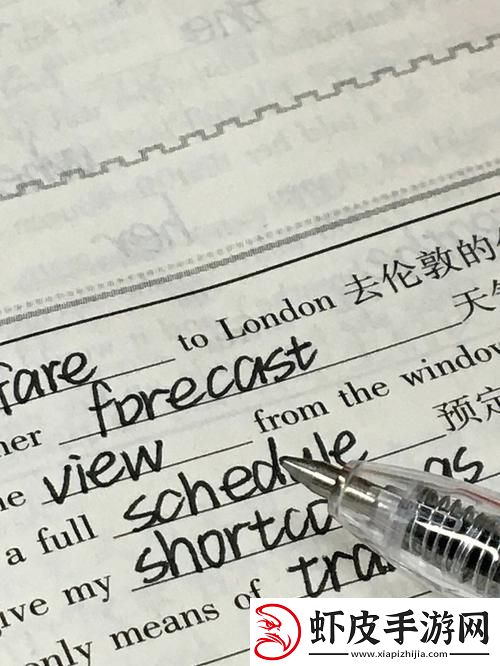 fare to London 去伦敦的
her forecast 天
view from the window
a full schedule 预定
give my as
only means of
虾皮手游网
www.xiapizhijia.com